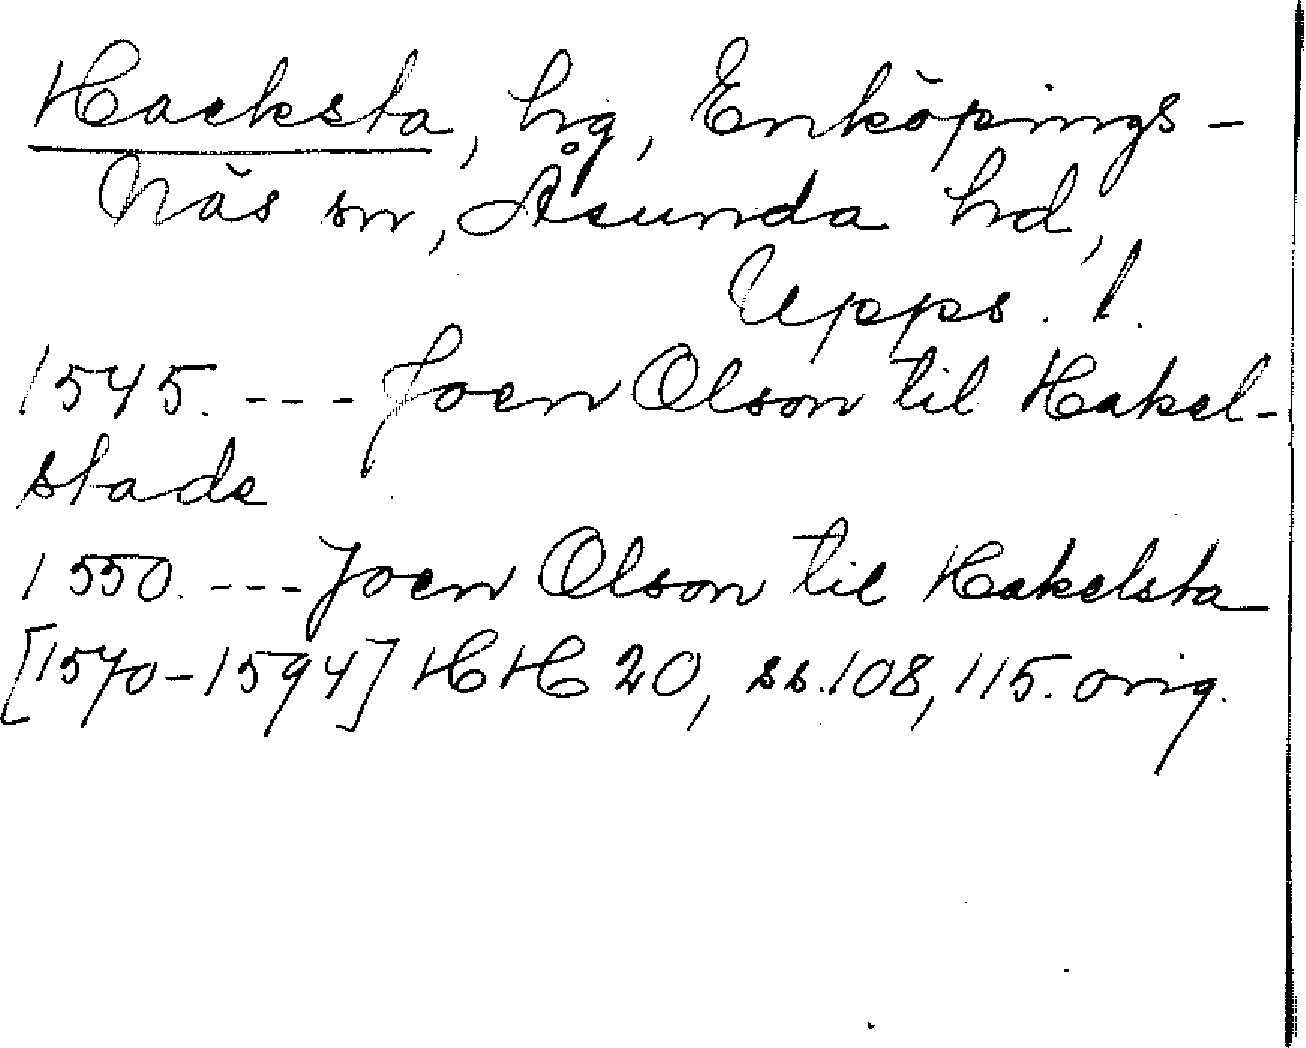 Hacksta, hg, Enköpings-
Näs sn, Åsunda hd,
Upps. l.
1545. --- Joen Olson til Hakel-
stade
1550. --- Joen Olson til Hakelsta
[1570-1594] HH 20, ss. 108, 115. orig.